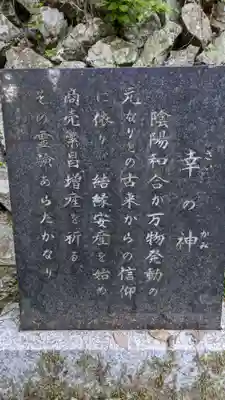 幸の神
さいのかみ
陰陽和合が万物発動の
元なりとの古来からの信仰
に依り、結縁安産を始め
商売繁昌増産を祈る
その霊験あらたかなり